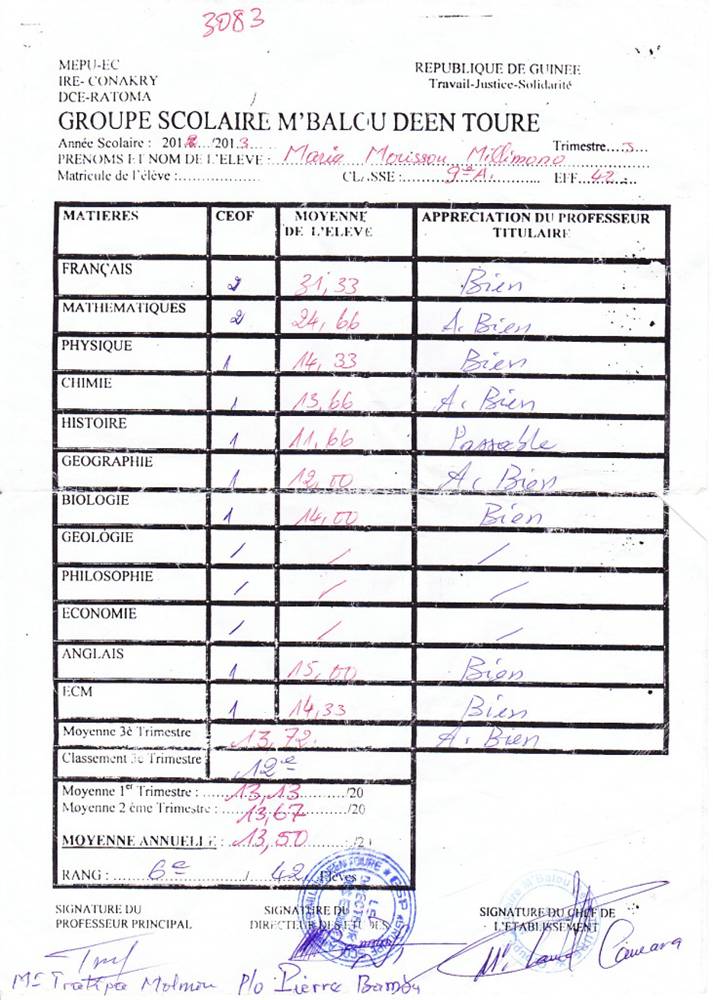 3083
MEPU-EC
REPUBLIQUE DE GUINEE
IRE- CONAKRY
Travail-Justice-Solidarité
DCE-RATOMA
GROUPE SCOLAIRE M'BALOU DEEN TOURE
Année Scolaire : 2012.../2013... Trimestre....3...
PRENOMS ET NOM DE L'ELEVE : Maria Mouissou Millimono
Matricule de l'élève :............... CLASSE :........9è A............. EFF...42....
MATIERES CEOF MOYENNE DE L'ELEVE APPRECIATION DU PROFESSEUR TITULAIRE
FRANÇAIS 2 31,33 Bien
MATHEMATIQUES 2 24,66 A. Bien
PHYSIQUE 1 14,33 Bien
CHIMIE 1 13,66 A. Bien
HISTOIRE 1 11,66 Passable
GEOGRAPHIE 1 12,00 A. Bien
BIOLOGIE 1 14,00 Bien
GEOLOGIE / / /
PHILOSOPHIE / / /
ECONOMIE / / /
ANGLAIS 1 15,00 Bien
ECM 1 14,33 Bien
Moyenne 3è Trimestre 13,72 A. Bien
Classement 3e Trimestre 12e
Moyenne 1er Trimestre : ....13,13....../20
Moyenne 2 ème Trimestre : 13,67 ....../20
MOYENNE ANNUELLE : 13,50 ...../20
RANG : ......6e....../ 42 Elèves
SIGNATURE DU PROFESSEUR PRINCIPAL
SIGNATURE DU DIRECTEUR DES ETUDES
SIGNATURE DU CHEF DE L'ETABLISSEMENT
P/o Pierre Bambou
Camara